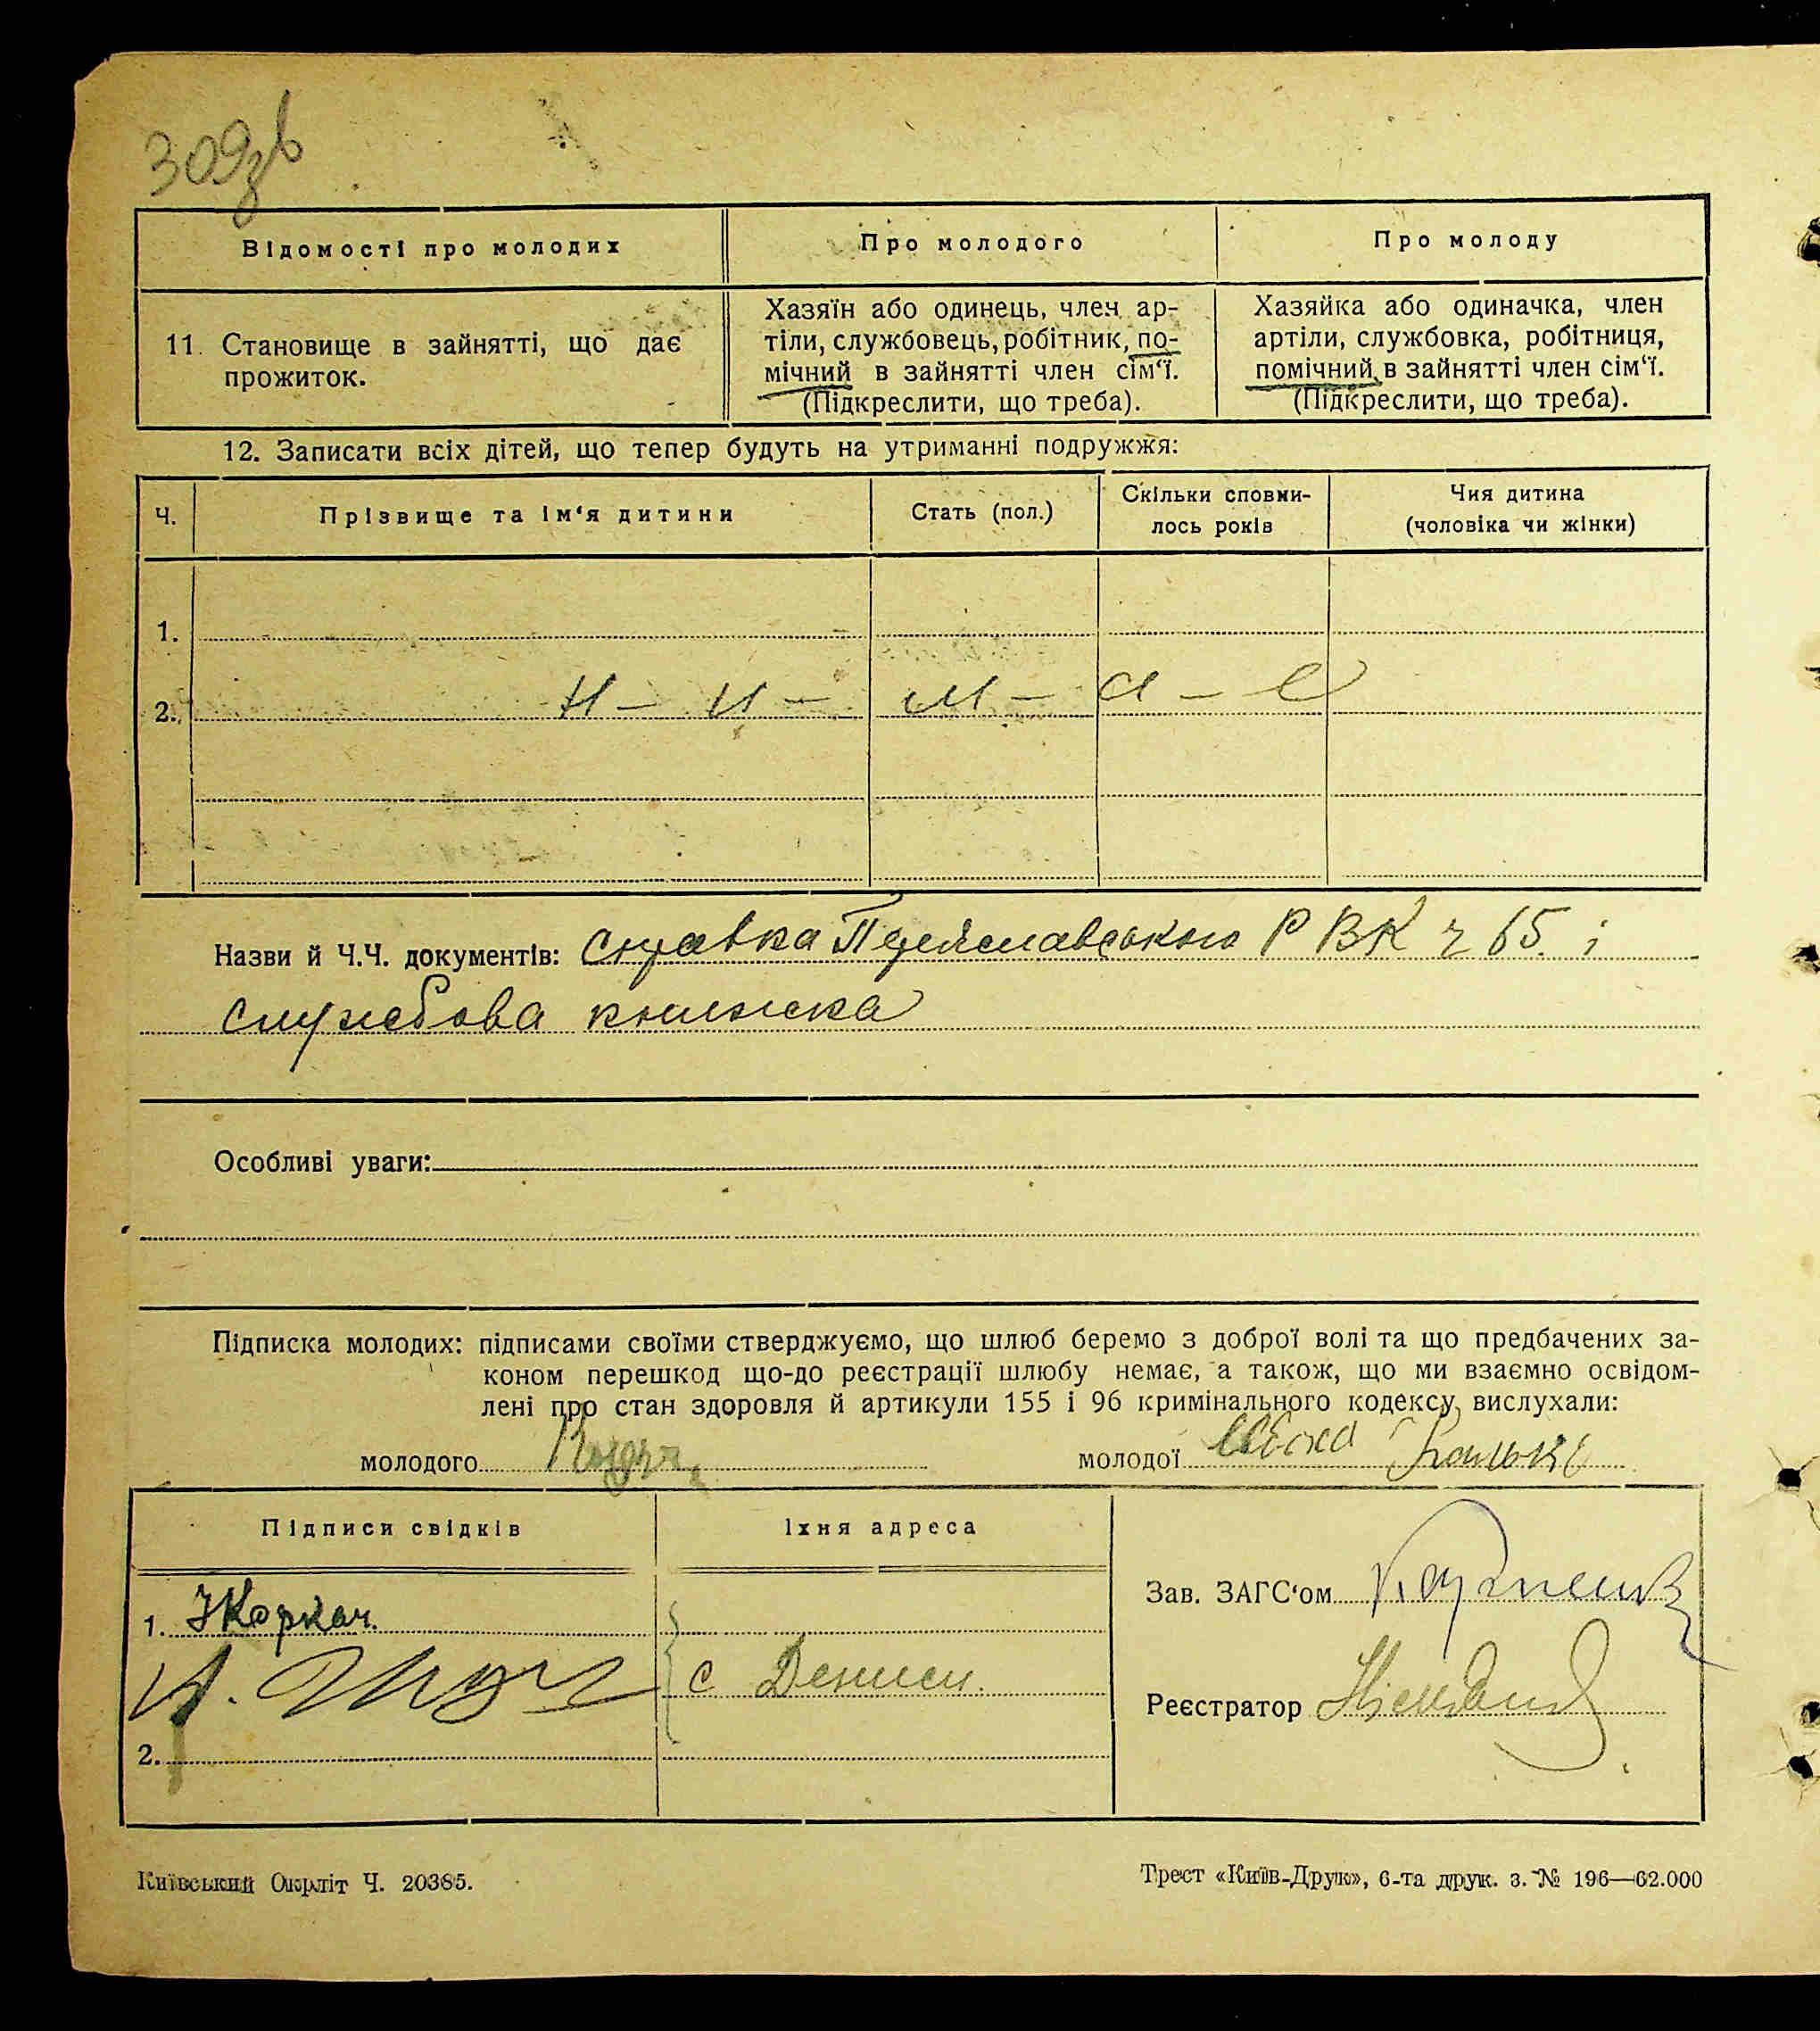 309зв
Відомості про молодих
Про молодого
Про молоду
11. Становище в зайнятті, що дає
прожиток.
Хазяїн або одинець, член ар-
тіли, службовець, робітник, по-
мічний в зайнятті член сім‘ї.
(Підкреслити, що треба).
Хазяйка або одиначка, член
артіли, службовка, робітниця,
помічний в зайнятті член сім‘ї.
(Підкреслити, що треба).
12. Записати всіх дітей, що тепер будуть на утриманні подружжя:
Ч.
Прізвище та ім‘я дитини
Стать (пол.)
Скільки сповни-
лось років
Чия дитина
(чоловіка чи жінки)
1.
2. Н – и – м – а – є
Назви й Ч.Ч. документів: справка Переяславського РВК ч 65 і
службова книжка
Особливі уваги:
Підписка молодих: підписами своїми стверджуємо, що шлюб беремо з доброї волі та що предбачених за-
коном перешкод що-до реєстрації шлюбу немає, а також, що ми взаємно освідом-
лені про стан здоровля й артикули 155 і 96 кримінального кодексу, вислухали:
молодого
молодої
Підписи свідків
Їхня адреса
1. Коркач.
с Дениси.
2.
Зав. ЗАГС‘ом
Реєстратор
Київський Окрліт Ч. 20385.
Трест «Київ-Друк», 6-та друк. з. № 196—62.000